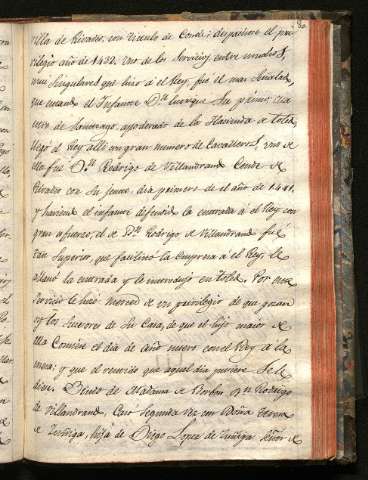 villa de Rivadeo, con titulo de Conde; despachose el pri
vilegio año de 1432. uno de los Servicios, entre muchos,
mui Singulares que hizo á el Rey, fue el mas Señalado,
que quando el Infante Dn. Enrique Su primo,
de la Hacienda de toledo
llegó el Rey alli con gran numero de Cavalleros, uno de
ellos fue Dn. Rodrigo de Villandrando Conde de
Rivadeo con Su gente, dia primero de el año de 1441.
y haviendo el infante difendido la entrada á el Rey, con
gran esfuerzo, el de Dn. Rodrigo de Villandrando fue
tan Superior, que facilitó la empresa á el Rey, le
allanó la entrada y le introdujo en toledo. Por este
Servicio le hizo merced de un privilegio de que gozan
oy los Señores de Su Casa, de que el hijo maior de
ella Comiese el dia de año nuevo con el Rey á la
mesa; y que el vestido que aquel dia pusiere Se le
diese. Viudo de Madama de Borbon Dn. Rodrigo
de Villandrando, Caso Segunda vez con Doña
de Zuñiga, hija de Diego Lopez de Zuñiga Señor de